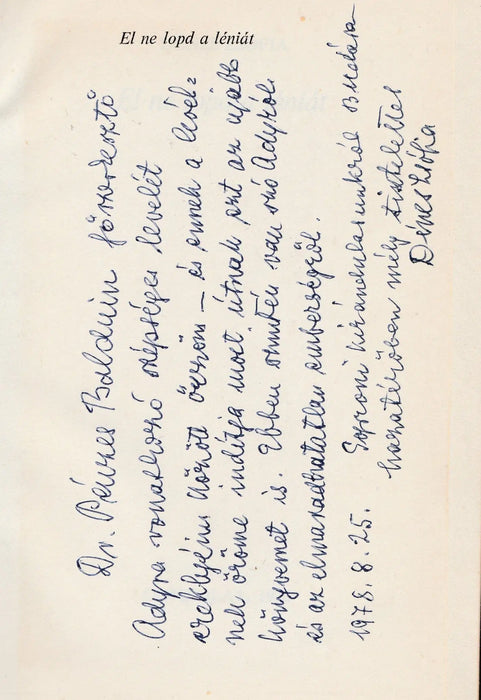 El ne lopd a léniát
Dr. Pénzes Balduin főszerkesztő
Adyra vonatkozó szépséges levelét
ereklyéim között őrzöm – és ennek a levél=
nek öröme indítja most útnak ezt az újabb
könyvemet is. Ebben szintén van szó Adyról
és az elmaradhatatlan emberségről.
1978. 8. 25. Soproni kirándulásunkról Budára
hazatérőben mély tisztelettel
Dénes Zsófia